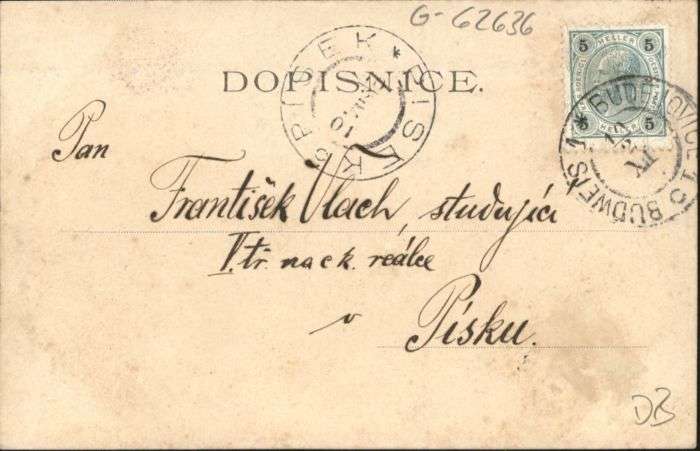 G-62636
DOPISNICE.
PISEK * PISEK
01
5 HELLER 5
5 HELLER 5
* BUDĚJOVICE
BUDWEIS 1
IX
Pan
František Vlach, studující
V. tř. na c.k. reálce
v Písku.
DB